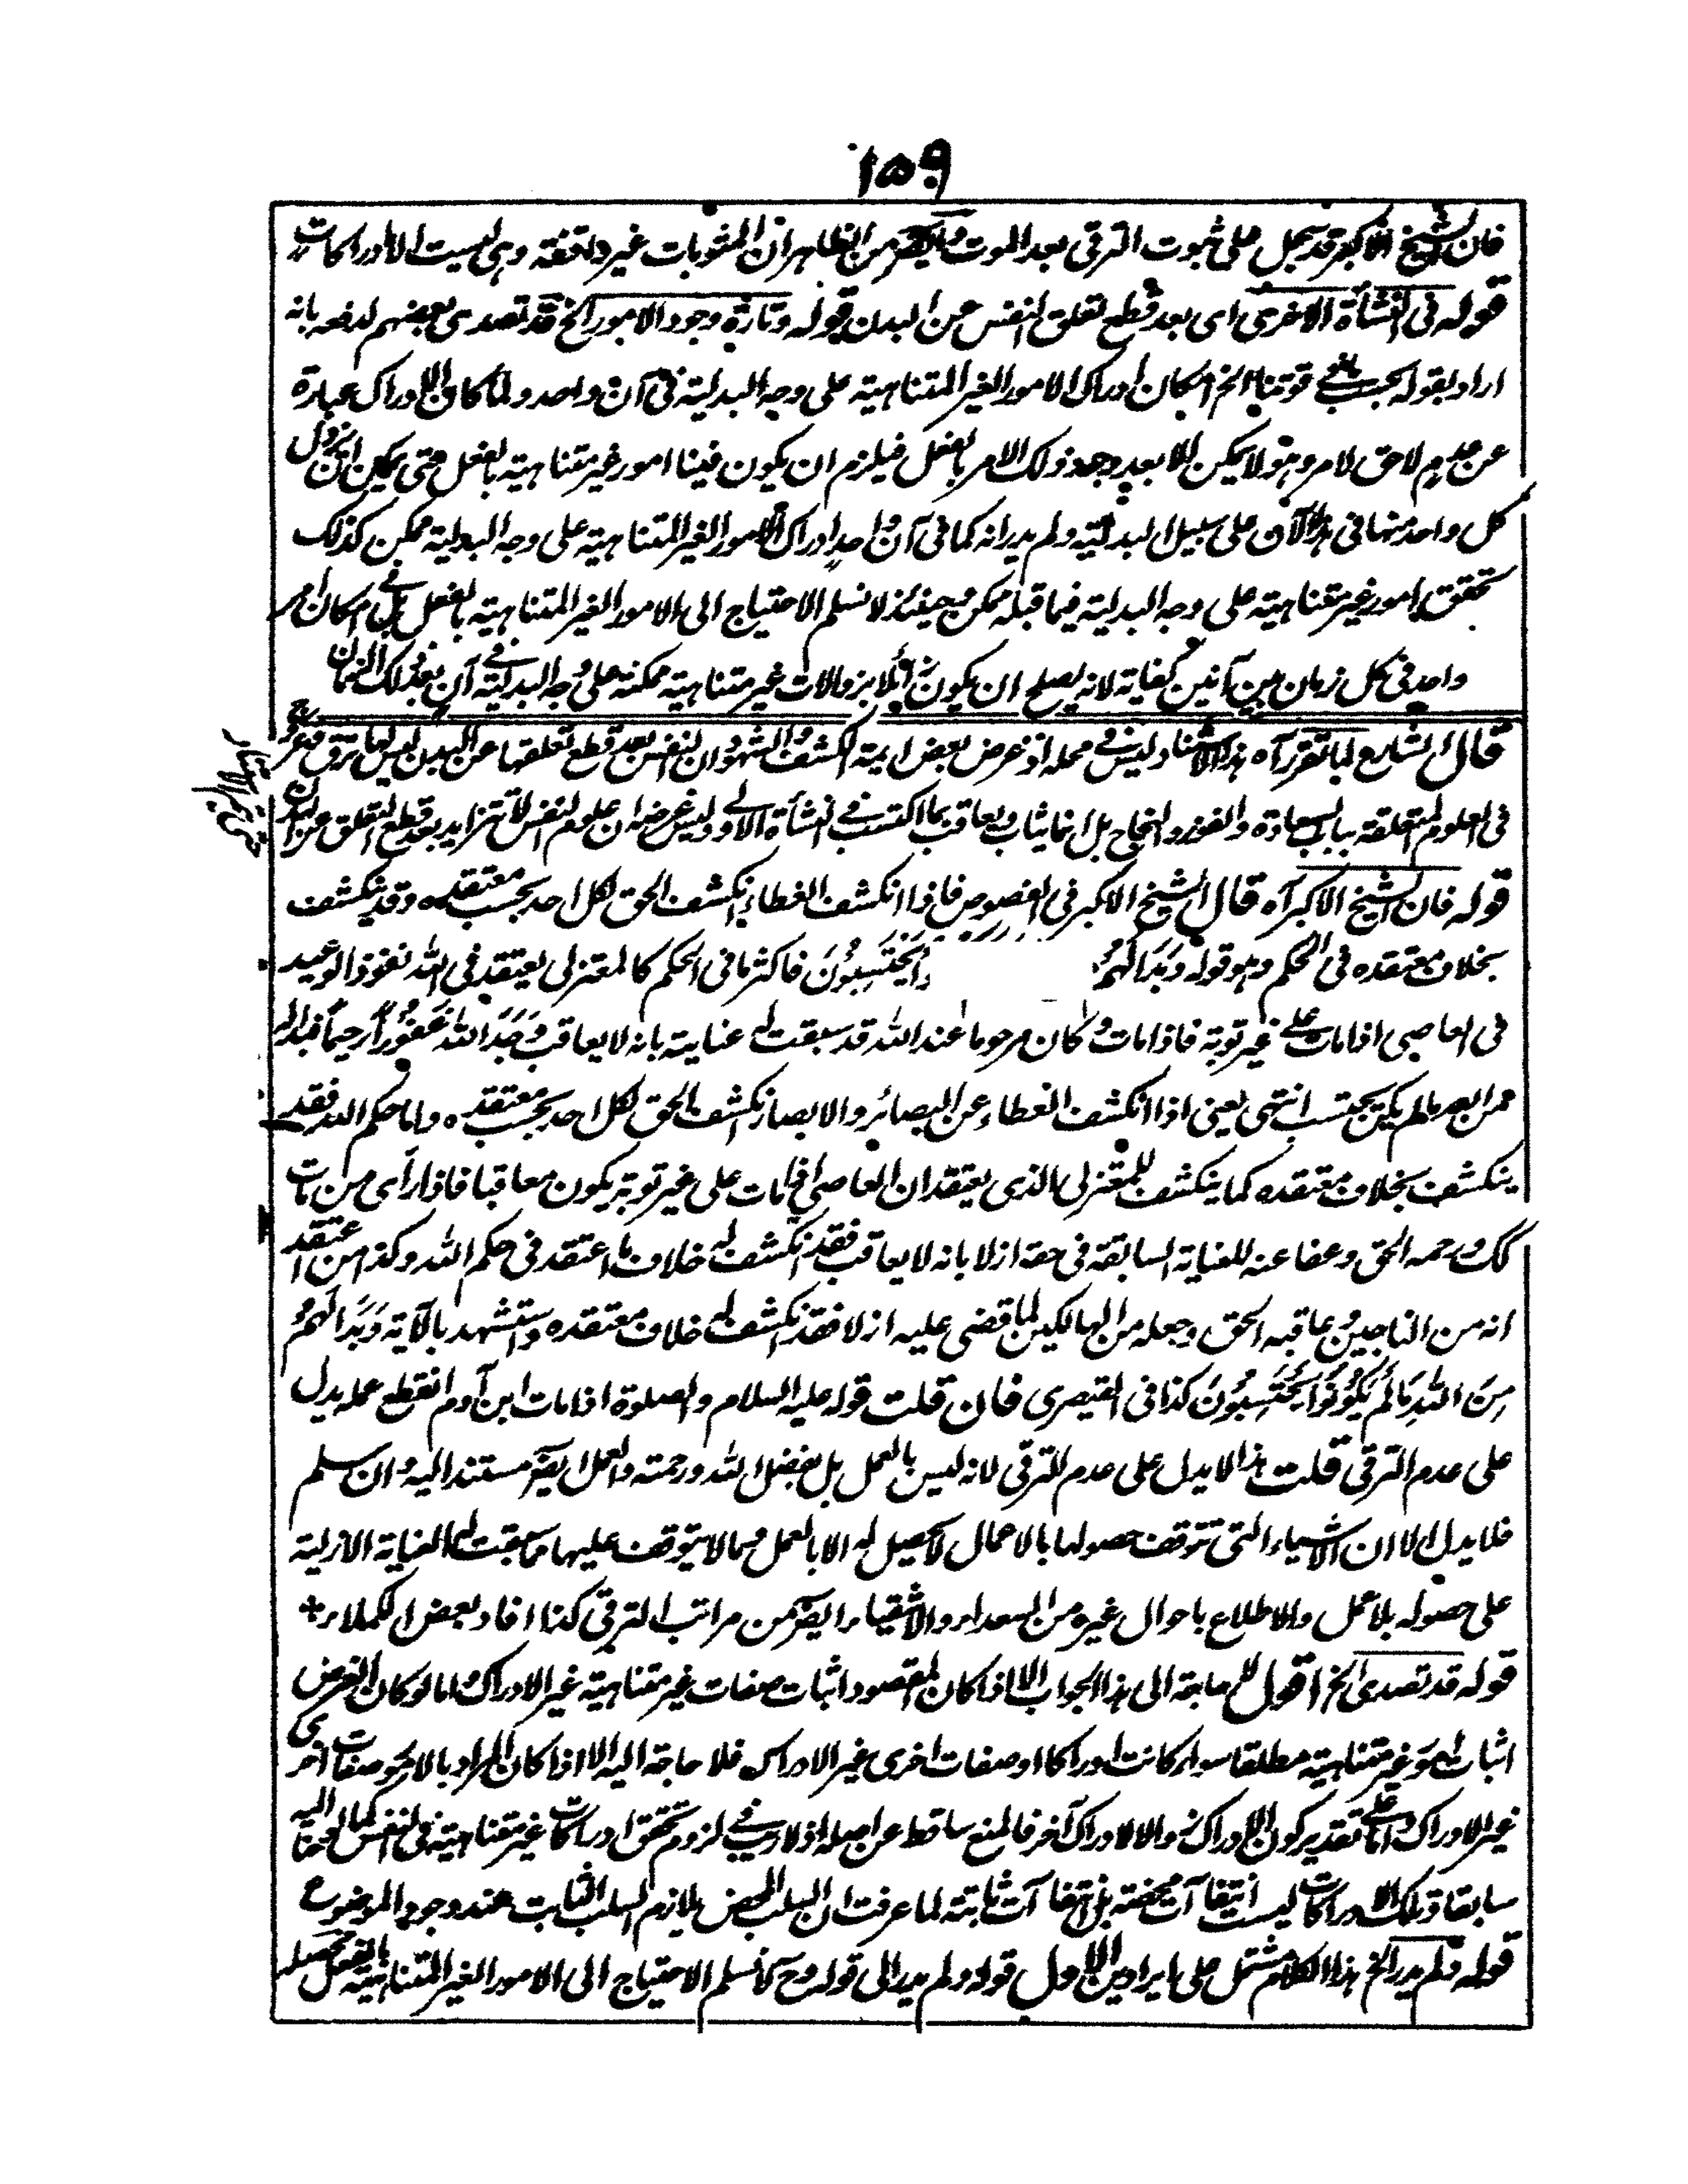 ١٥٩
فان الشيخ الاكبر قد سجل على ثبوت الترقى بعد الموت وايضا من الظاهر ان المثوبات غير واقفة وهى ليست الا ادراكات
قوله فى النشأة الاخرى اى بعد قطع تعلق النفس عن البدن قوله وتارة وجود الامور الخ قد تصدى بعضهم لدفعه بانه
اراد بقوله بحسب قوتنا الخ امكان ادراك الامور الغير المتناهية على وجه البدلية فى آن واحد ولما كان الادراك عبارة
عن عدم لاحق لامر وهو لا يمكن الا بعد وجود ذلك الامر بالفعل فيلزم ان يكون فينا امور غير متناهية بالفعل حتى يمكن ان يزول
كل واحد منها فى هذا الآن على سبيل البدلية ولم يدر انه كما فى آن واحد ادراك الامور الغير المتناهية على وجه البدلية ممكن كذلك
تحقق امور غير متناهية على وجه البدلية فيما قبله ممكن وحينئذ لا نسلم الاحتياج الى الامور الغير المتناهية بالفعل بل فى امكان امر
واحد فى كل زمان بين آنين كفاية لانه يصلح ان يكون زائلا بزوالات غير متناهية ممكنة على وجه البدلية فى آن بعد ذلك الزمان
قال الشارح لما تقرر آه هذا الاسناد ليس فى محله اذ غرض بعض ايمة الكشف والشهود ان النفس بعد قطع تعلقها عن البدن ليس لها ترق وعروج
فى العلوم المتعلقة بباب السعادة والفوز والنجاح بل انما يثاب ويعاقب بما اكتسب فى النشأة الاولى وليس غرضه ان علوم النفس لا تتزايد بعد قطع التعلق عن البدن
قوله فان الشيخ الاكبر آه قال الشيخ الاكبر فى الفصوص فاذا انكشف الغطاء انكشف الحق لكل احد بحسب معتقده وقد ينكشف
بخلاف معتقده فى الحكم وهو قوله وَبَدَا لَهُمْ يَحْتَسِبُونَ فاكثرها فى الحكم كالمعتزلى يعتقد فى الله نفوذ الوعيد
فى العاصى اذا مات على غير توبة فاذا مات وكان مرحوما عند الله قد سبقت له عناية بانه لا يعاقب وَجَدَ اللهَ غَفُورًا رَحِيمًا فبدا له
من الله ما لم يكن يحتسب انتهى يعنى اذا انكشف الغطاء عن البصائر والابصار انكشف الحق لكل احد بحسب معتقده واما حكم الله فقد
ينكشف بخلاف معتقده كما ينكشف للمعتزلى الذى يعتقد ان العاصى اذا مات على غير توبة يكون معاقبا فاذا رأى من مات
كك ورحمه الحق وعفا عنه للعناية السابقة فى حقه ازلا بانه لا يعاقب فقد انكشف له خلاف ما اعتقد فى حكم الله وكذا من اعتقد
انه من الناجين وعاقبه الحق وجعله من الهالكين لما قضى عليه ازلا فقد انكشف له خلاف معتقده واستشهد بالآية وَبَدَا لَهُمْ
مِنَ اللهِ مَا لَمْ يَكُونُوا يَحْتَسِبُونَ كذا فى القيصرى فان قلت قوله عليه السلام والصلوة اذا مات ابن آدم انقطع عمله يدل
على عدم الترقى قلت هذا لا يدل على عدم الترقى لانه ليس بالعمل بل بفضل الله ورحمته والعمل ايضا مستند اليه وان سلم
فلا يدل الا ان الاشياء التى تتوقف حصولها بالاعمال لا يحصل له الا بالعمل وما لا يتوقف عليها مما سبقت له العناية الازلية
على حصوله بلا عمل والاطلاع باحوال غيره من السعداء والاشقياء ايضا من مراتب الترقى كذا افاد بعض الكملاء
قوله قد تصدى الخ اقول لا حاجة الى هذا الجواب الا اذا كان المقصود اثبات صفات غير متناهية غير الادراك واما لو كان الغرض
اثبات امور غير متناهية مطلقا سواء كانت ادراكا او صفات اخرى غير الادراك فلا حاجة اليه الا اذا كان المراد بالامور صفات اخرى
غير الادراك واما على تقدير كون الادراك زوالا لادراك آخر فالمنع ساقط عن اصله اذ لا ريب فى لزوم تحقق ادراكات غير متناهية فى النفس كما لوحنا اليه
سابقا وتلك الادراكات ليست انتفاآت محضة بل انتفاآت ثابتة لما عرفت ان السلب المحض يلازم السلب الثابت عند وجود الموضوع
قوله ولم يدر الخ هذا الكلام مشتمل على ايرادين الاول قوله ولم يدر الى قوله وح لا نسلم الاحتياج الى الامور الغير المتناهية بالفعل محصله